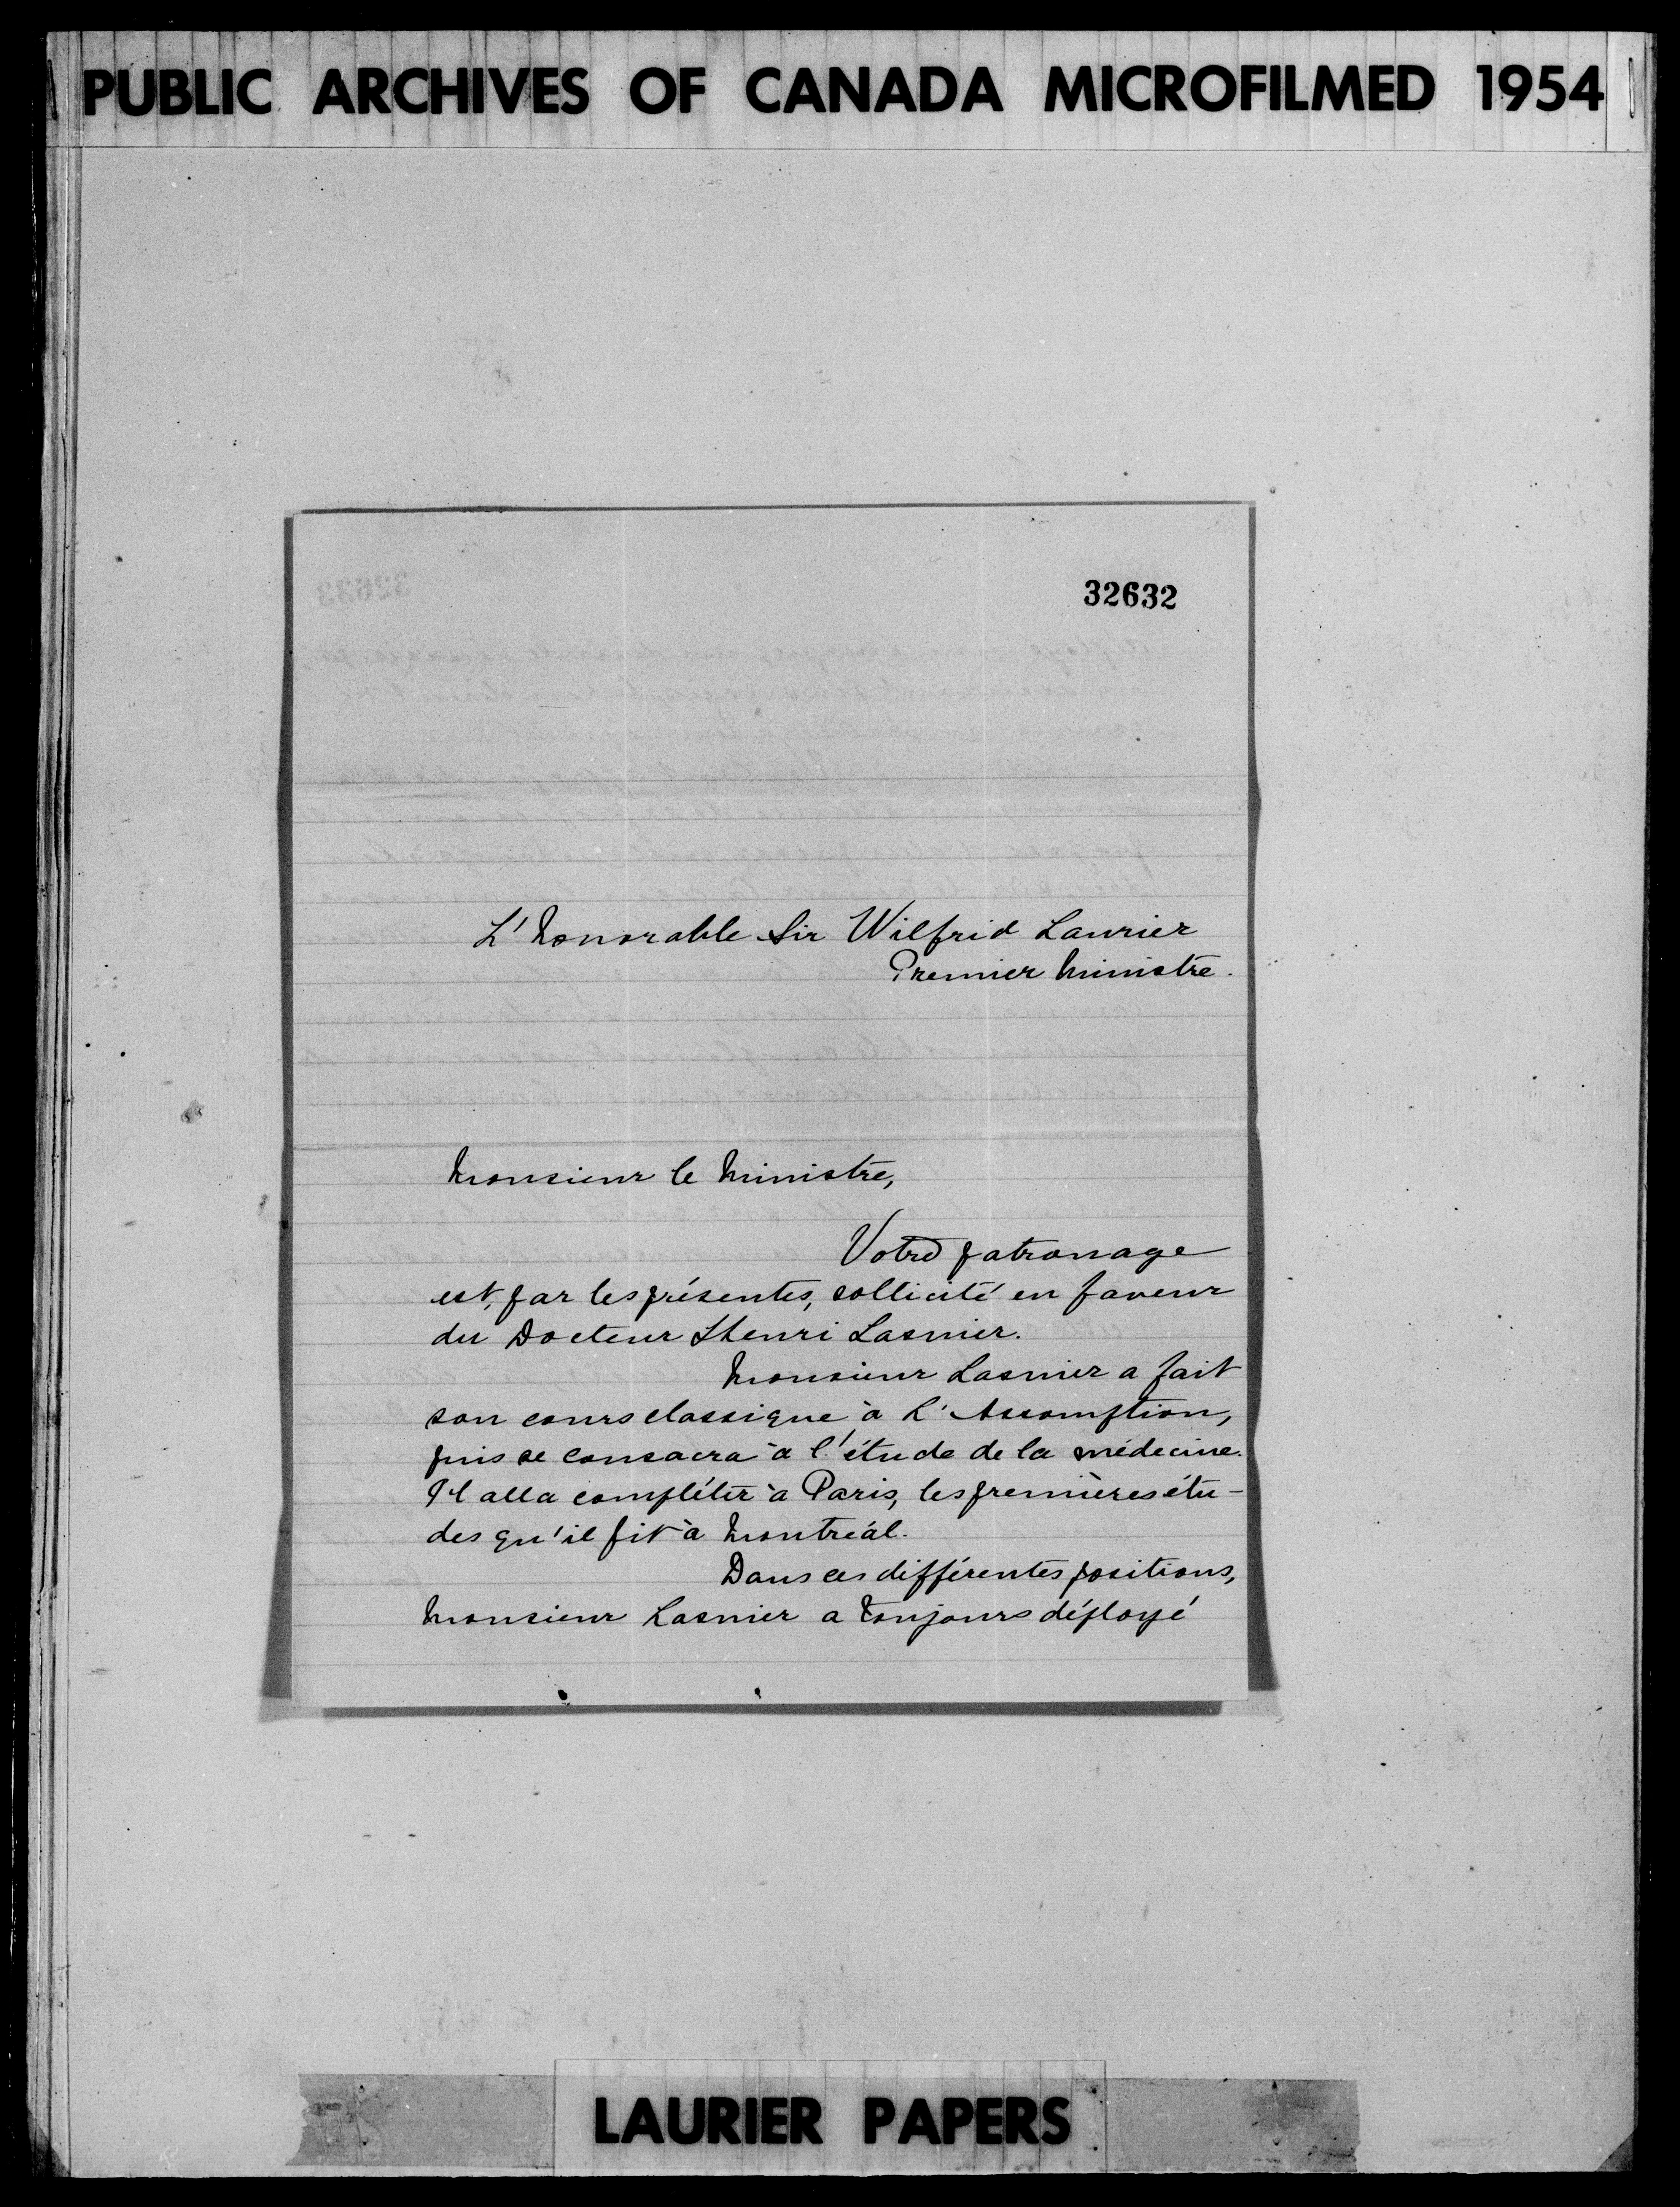 PUBLIC ARCHIVES OF CANADA MICROFILMED 1954
32632
L'honorable Sir Wilfrid Laurier
Premier Ministre.
Monsieur le Ministre,
Votre patronage
est, par les présentes, sollicité en faveur
du Docteur Henri Lasnier.
Monsieur Lasnier a fait
son cours classique à L'Assomption,
puis se consacra à l'étude de la médecine.
Il alla compléter à Paris, les premières étu-
des qu'il fit à Montréal.
Dans ces différentes positions,
Monsieur Lasnier a toujours déployé
LAURIER PAPERS